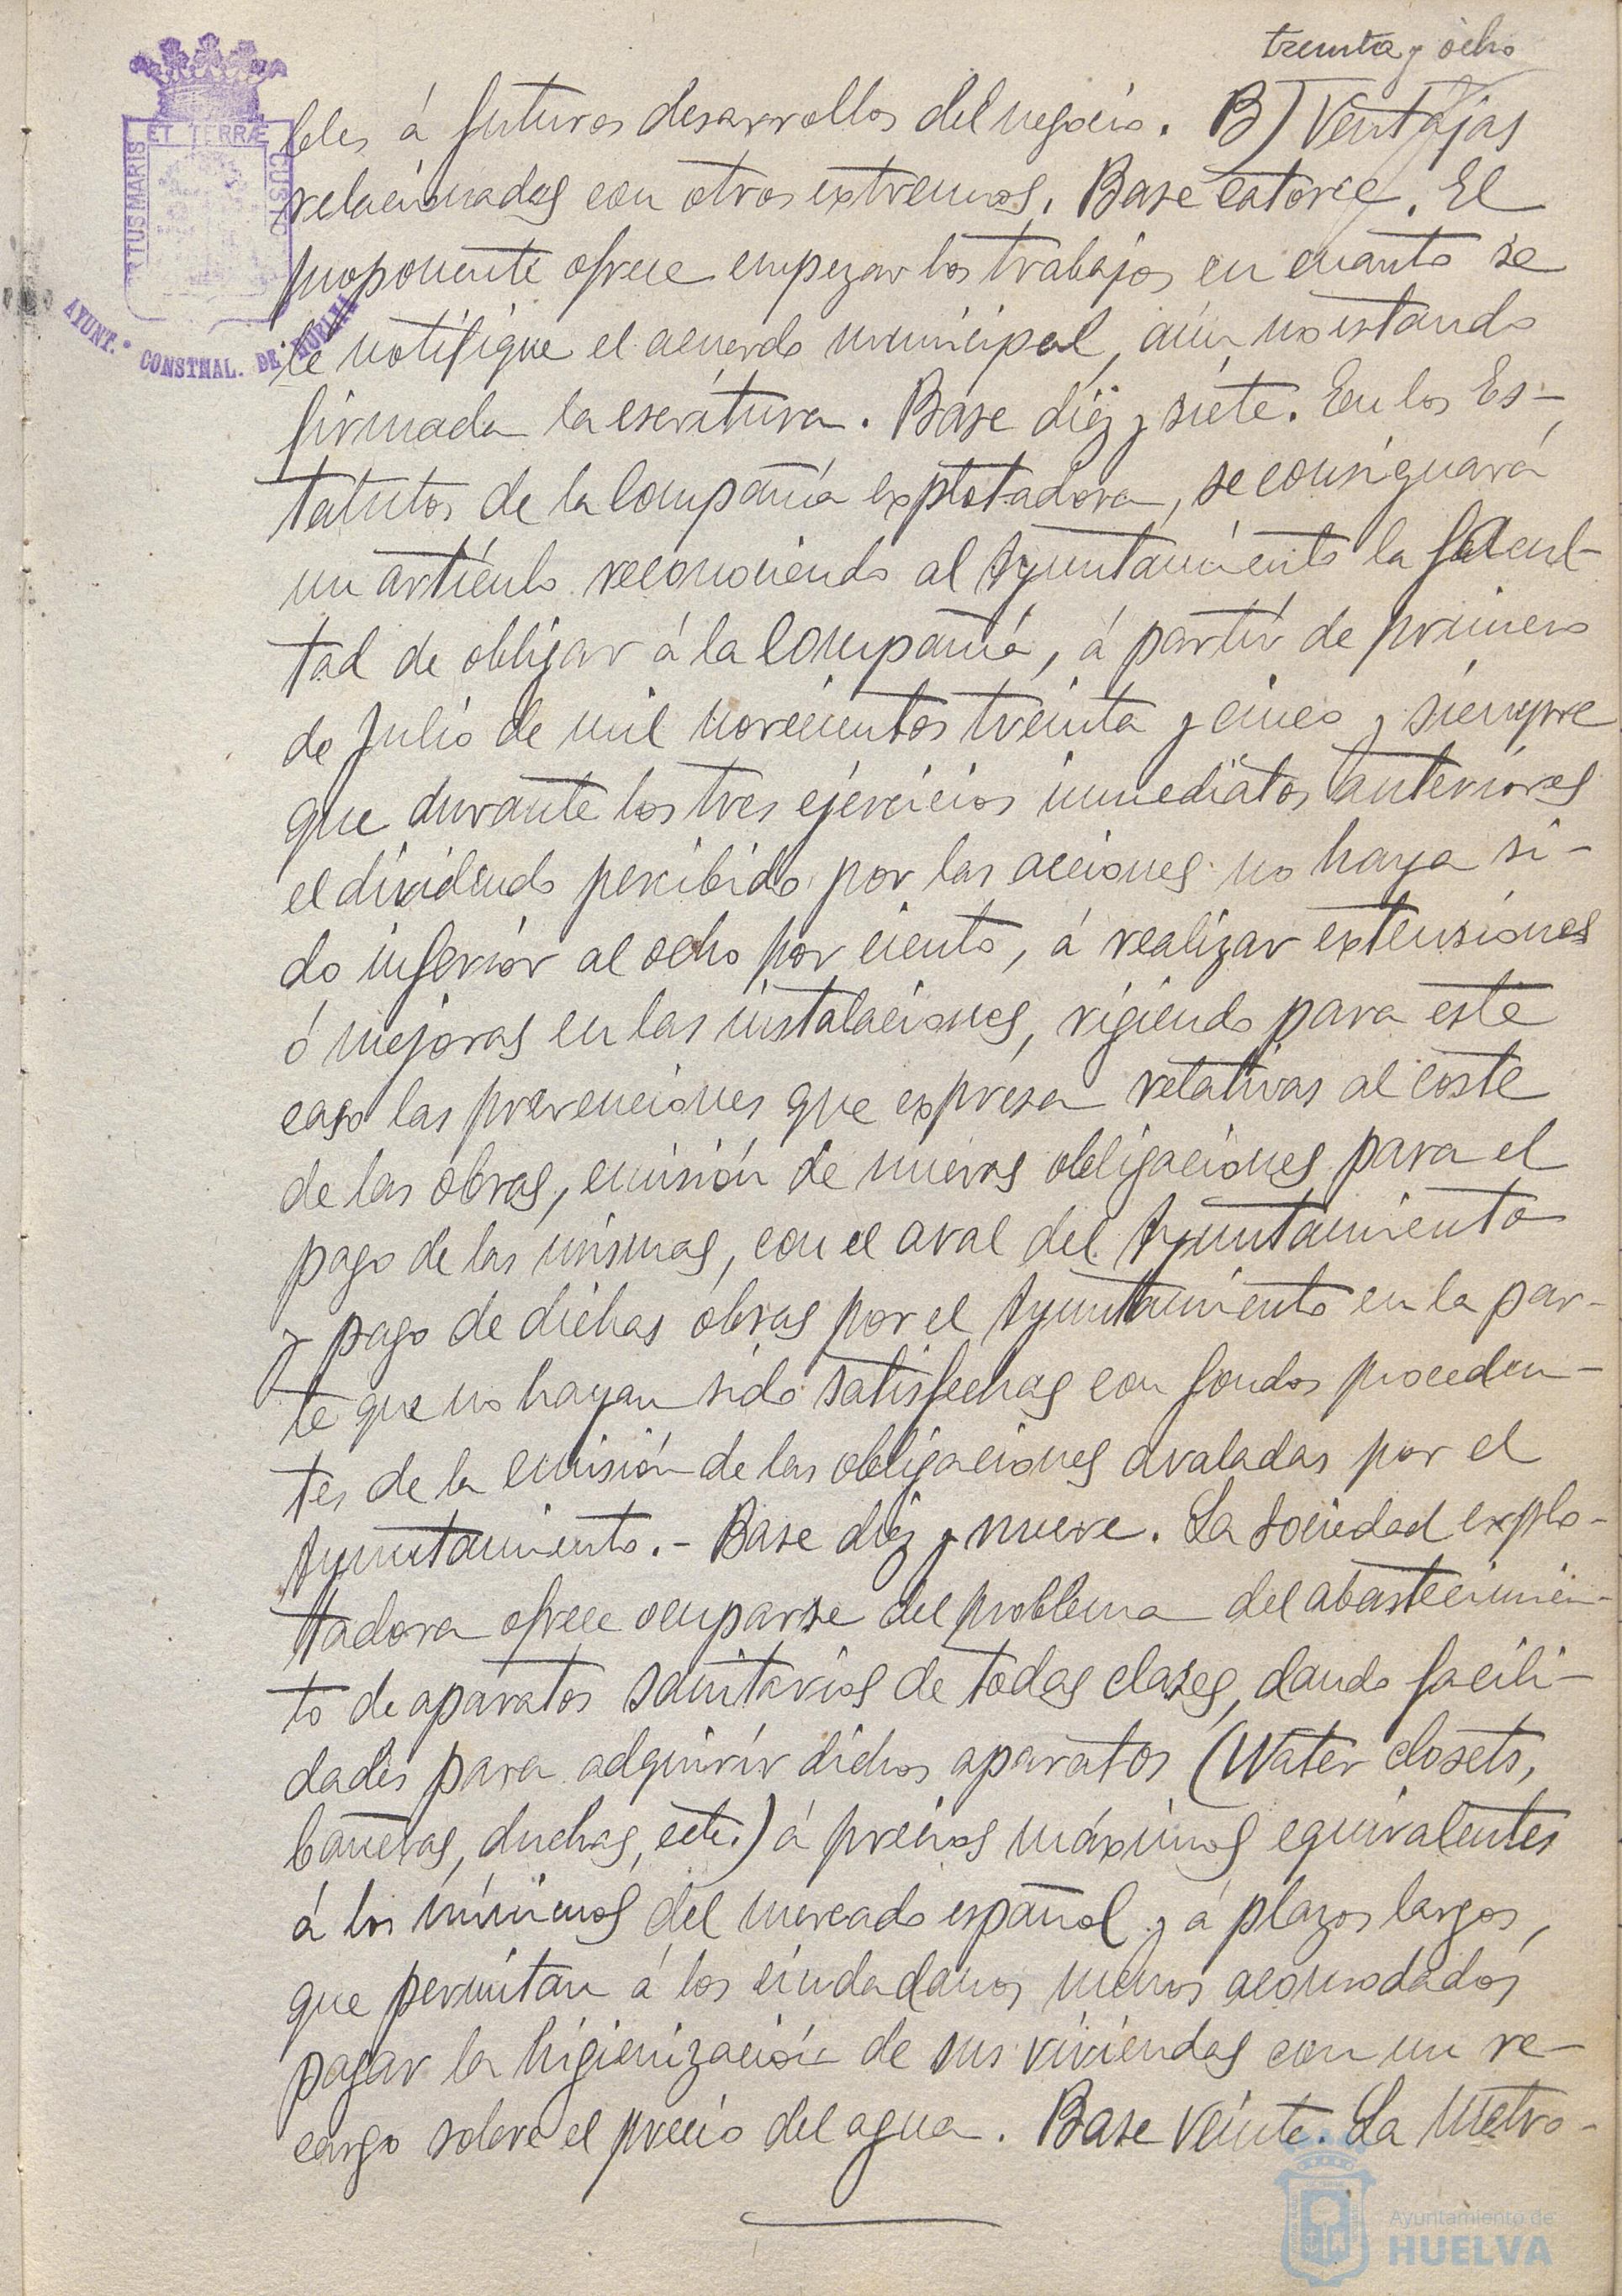 treinta y ocho
bles á futuros desarrollos del negocio. B) Ventajas
relacionadas con otros extremos. Base catorce. El
proponente ofrece empezar los trabajos en cuanto se
le notifique el acuerdo municipal, aún no estando
firmada la escritura. Base diez y siete. En los Es-
tatutos de la Compañía explotadora, se consignará
un artículo reconociendo al Ayuntamiento la facul-
tad de obligar á la Compañía, á partir de primero
de Julio de mil novecientos treinta y cinco y siempre
que durante los tres ejercicios inmediatos anteriores
el dividendo percibido por las acciones no haya si-
do inferior al ocho por ciento, á realizar extensiones
ó mejoras en las instalaciones, rigiendo para este
caso las prevenciones que expresa relativas al coste
de las obras, emisión de nuevas obligaciones para el
pago de las mismas, con el aval del Ayuntamiento
y pago de dichas obras por el Ayuntamiento en la par-
te que no hayan sido satisfechas con fondos proceden-
tes de la emisión de las obligaciones avaladas por el
Ayuntamiento.- Base diez y nueve. La Sociedad explo-
tadora ofrece ocuparse del problema del abastecimien-
to de aparatos sanitarios de todas clases, dando facili-
dades para adquirir dichos aparatos (Water closets,
bañeras, duchas, ect.) á precios máximos equivalentes
á los mínimos del mercado español y á plazos largos,
que permitan á los ciudadanos menos acomodados
pagar la higienización de sus viviendas con un re-
cargo sobre el precio del agua. Base veinte. La Metro-
ET TERRÆ
TUS MARIS
CUSTO
AYUNT.º CONSTNAL. DE HUELVA
Ayuntamiento de
HUELVA